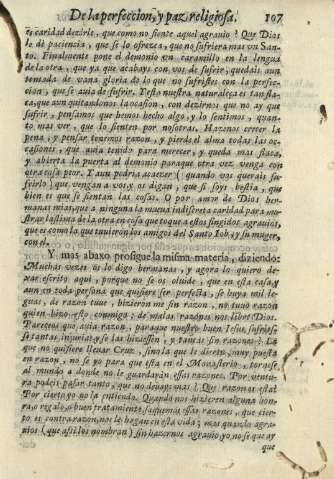 De la perfeccion, y paz religiosa. 107
es caridad dezirle, que como no siente aquel agrauio? Que Dios
le dè paciencia, que se lo ofrezca, que no sufriera mas vn San-
to. Finalmente pone el demonio vn caramillo en la lengua
de la otra, que ya que acabays con vos de sufrir, quedais aun
tentada de vana gloria de lo que no sufristes con la perfec-
cion, que se auia de sufrir. Y esta nuestra naturaleza es tan fla-
ca, que aun quitandonos la ocasion, con dezirnos que no ay que
sufrir, pensamos que hemos hecho algo, y lo sentimos, quan-
to mas ver, que lo sienten por nosotras. Hazenos crecer la
pena, y pensar tenemos razon, y pierde el alma todas las oc-
casiones, que auia tenido para merecer, y queda mas flaca,
y abierta la puerta al demonio paraque otra vez venga con
otra cosa peor. Y aun podria acaezer (quando vos querais su-
frirlo) que vengan a vos, y os digan, que si soys bestia, que
bien es que se sientan las cosas. O por amor de Dios her-
manas mias, que a ninguna la mueua indiscreta caridad para mo-
strar lastima de la otra en cosa que toque a estos fingidos agrauios,
que es como la que tuuieron los amigos del Santo Iob, y su muger,
con el.
Y mas abaxo prosigue la misma materia, diziendo:
Muchas vezes os lo digo hermanas, y agora lo quiero de-
xar escrito aqui, porque no se os oluide, que en esta casa, y
aun en toda persona que quisiere ser perfecta, se huya mil le-
guas, de razon tuue, hizieron me sin razon, no tuuo razon
quien hizo esto conmigo: de malas razones nos libre Dios.
Pareceos que auia razon, paraque nuestro buen Iesus, sufriesse
tantas injurias, y se las hiziessen, y tantas sin razones? La
que no quisiere lleuar Cruz, sino la que le dieren, muy puesta
en razon, no se yo para que està en el Monasterio, tornese
al mundo a donde no le guardaràn essas razones. Por ventu-
ra podeis passar tanto, que no deuays mas? Que razon es esta?
Por cierto yo no la entiendo. Quando nos hizieren alguna hon-
ra, o regalo, o buen tratamiento, saquemos essas razones, que cier-
to es contra razon, nos le hagan en esta vida; mas quando agra-
uios (que assi los nombran) sin hazernos agrauio, yo no se que ay
que